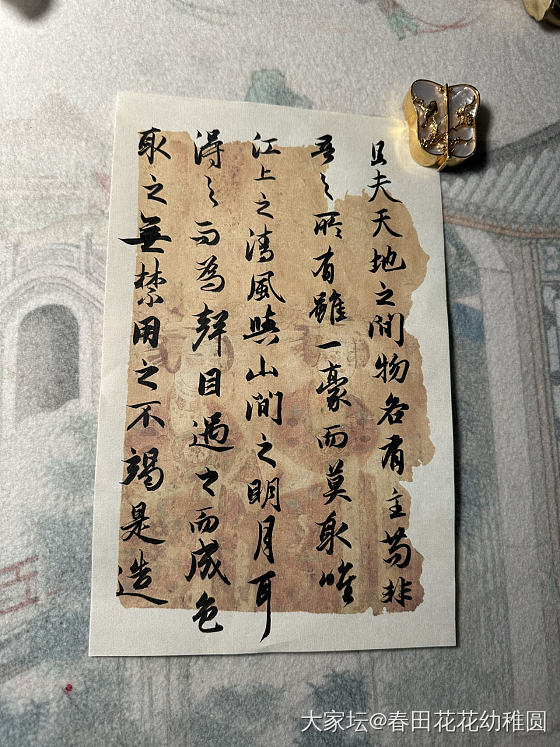 且夫天地之間物各有主苟非
吾之所有雖一豪而莫取唯
江上之清風與山間之明月耳
得之而為聲目遇之而成色
取之無禁用之不竭是造
大家坛@春田花花幼稚圆